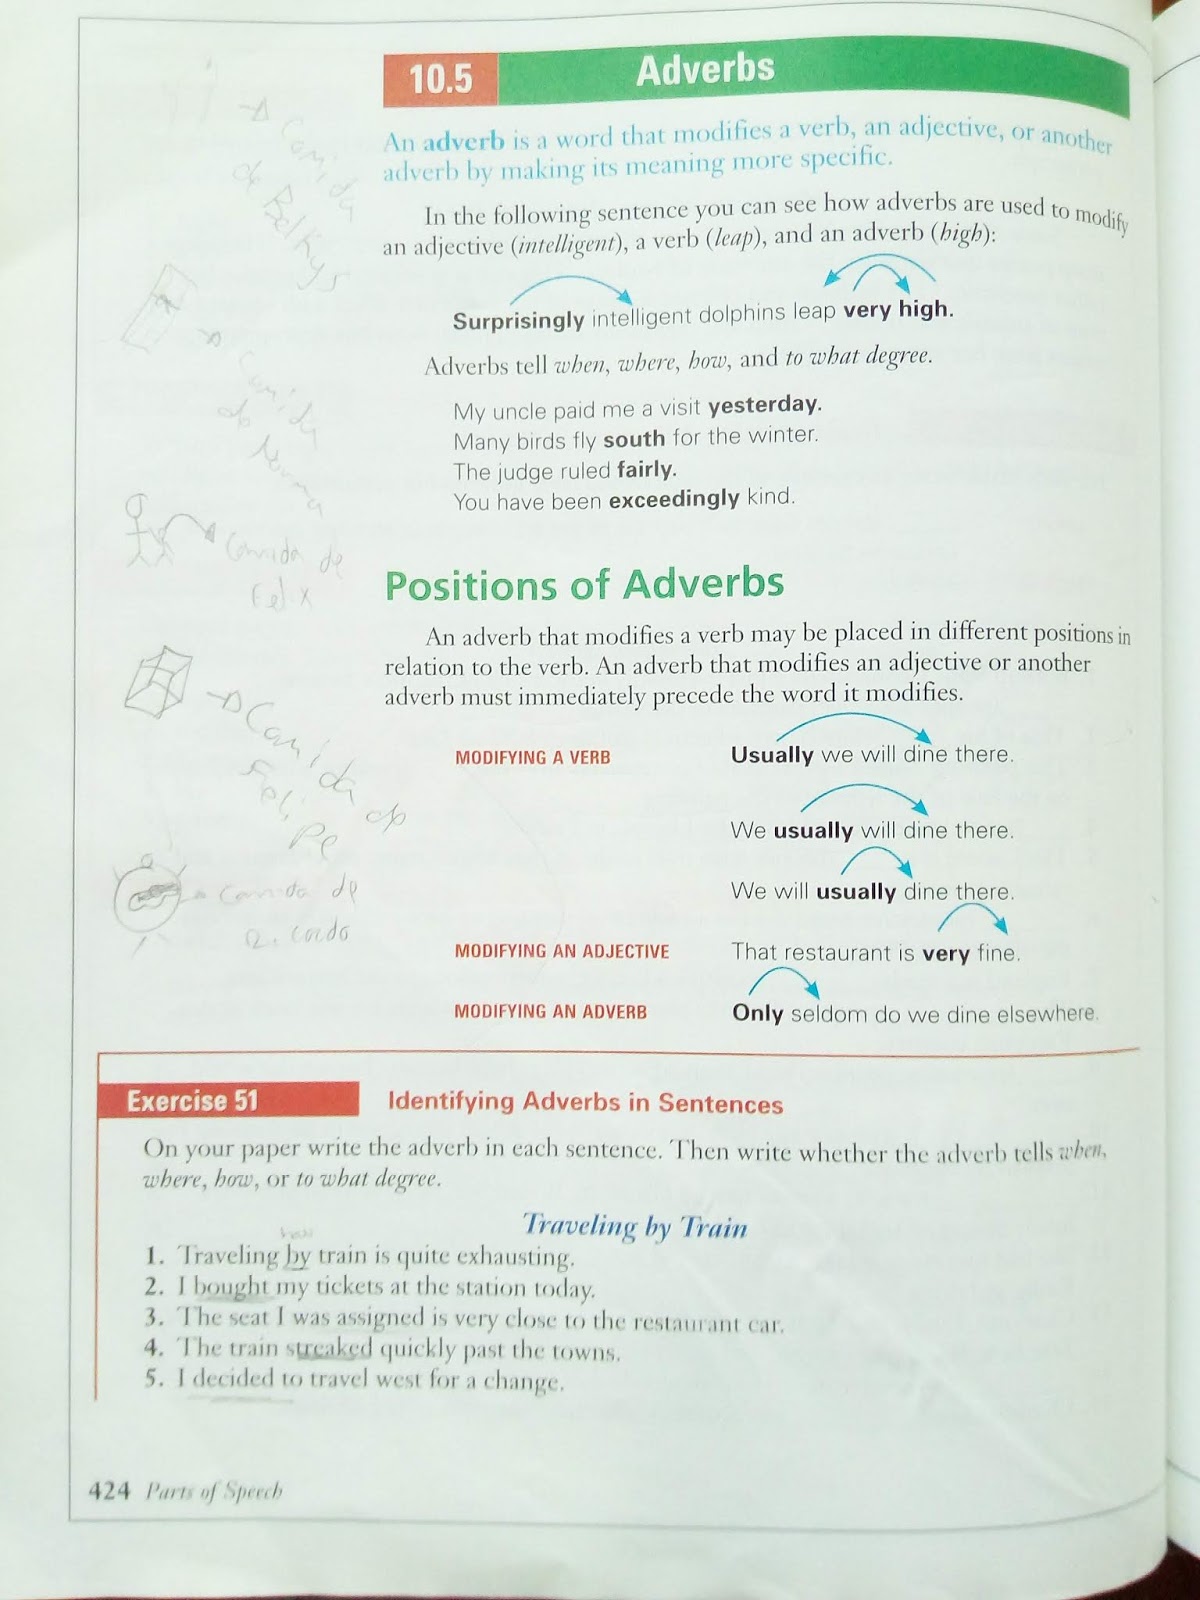 10.5 Adverbs
An adverb is a word that modifies a verb, an adjective, or another
adverb by making its meaning more specific.
In the following sentence you can see how adverbs are used to modify
an adjective (intelligent), a verb (leap), and an adverb (high):
Surprisingly intelligent dolphins leap very high.
Adverbs tell when, where, how, and to what degree.
My uncle paid me a visit yesterday.
Many birds fly south for the winter.
The judge ruled fairly.
You have been exceedingly kind.
Comida
de Belkys
Comida
de Norma
Comida de
Felix
Comida de
Felipe
Comida de
Positions of Adverbs
An adverb that modifies a verb may be placed in different positions in
relation to the verb. An adverb that modifies an adjective or another
adverb must immediately precede the word it modifies.
MODIFYING A VERB Usually we will dine there.
We usually will dine there.
We will usually dine there.
MODIFYING AN ADJECTIVE That restaurant is very fine.
MODIFYING AN ADVERB Only seldom do we dine elsewhere.
Exercise 51 Identifying Adverbs in Sentences
On your paper write the adverb in each sentence. Then write whether the adverb tells when,
where, how, or to what degree.
Traveling by Train
how
1. Traveling by train is quite exhausting.
2. I bought my tickets at the station today.
3. The seat I was assigned is very close to the restaurant car.
4. The train streaked quickly past the towns.
5. I decided to travel west for a change.
424 Parts of Speech